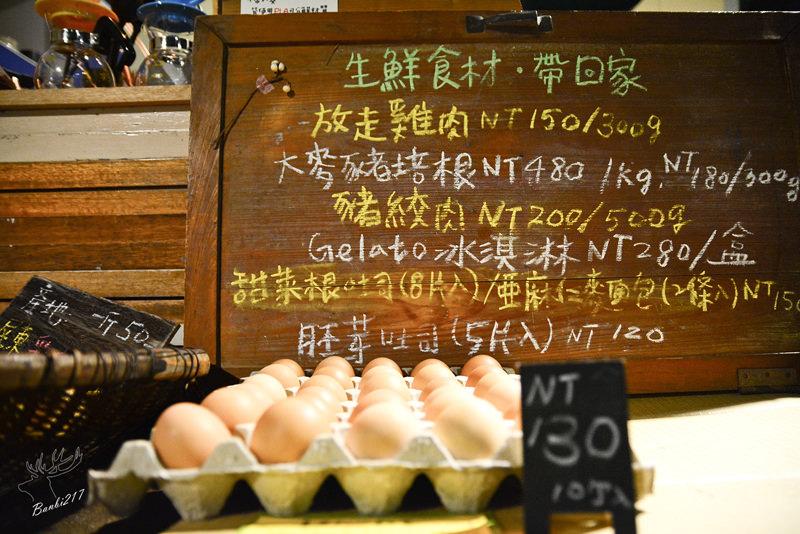 生鮮食材·帶回家
放走雞肉 NT 150/300g
大麥豬培根 NT 480 /kg. NT 180/300g
豬絞肉 NT 200/500g
Gelato冰淇淋 NT 280/盒
甜菜根吐司(8片入)/亜麻仁麥面包(2條入) NT 150
胚芽吐司(5片入) NT 120
產地:
一斤50
NT
130
10入
Banbi217